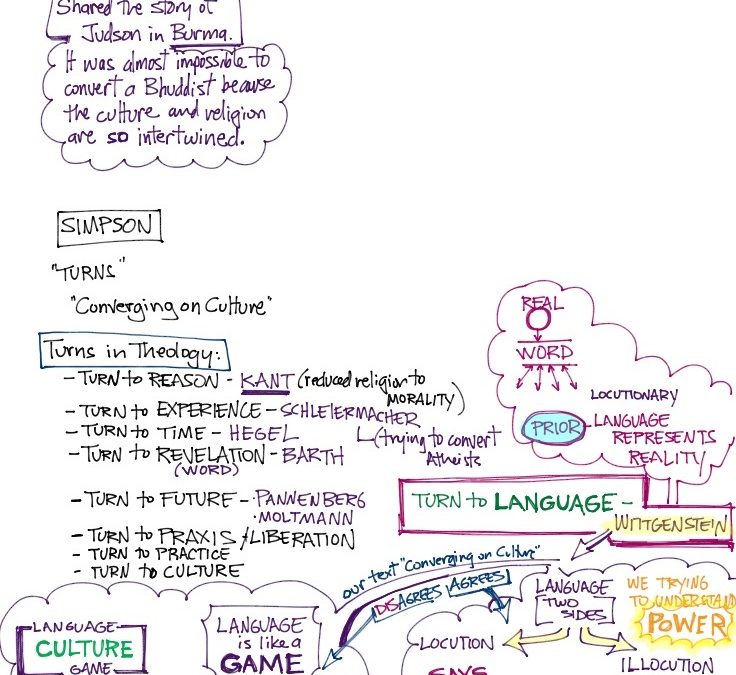 Shared the story of
Judson in Burma.
It was almost impossible to
convert a Bhuddist because
the culture and religion
are so intertwined.
SIMPSON
"TURNS"
"Converging on Culture"
Turns in Theology:
- TURN to REASON - KANT (reduced religion to
MORALITY)
- TURN to EXPERIENCE - SCHLEIERMACHER
(trying to convert
Atheists
- TURN to TIME - HEGEL
- TURN to REVELATION - BARTH
(WORD)
- TURN to FUTURE - PANNENBERG
· MOLTMANN
- TURN to PRAXIS / LIBERATION
- TURN to PRACTICE
- TURN to CULTURE
REAL
WORD
LOCUTIONARY
PRIOR - LANGUAGE
REPRESENTS
REALITY
TURN to LANGUAGE -
WITTGENSTEIN
our text "Converging on Culture"
DISAGREES AGREES
LANGUAGE
TWO
SIDES
WE TRYING
TO UNDERSTAND
POWER
LOCUTION
SAYS
ILLOCUTION
LANGUAGE
CULTURE
GAME
LANGUAGE
is like a
GAME